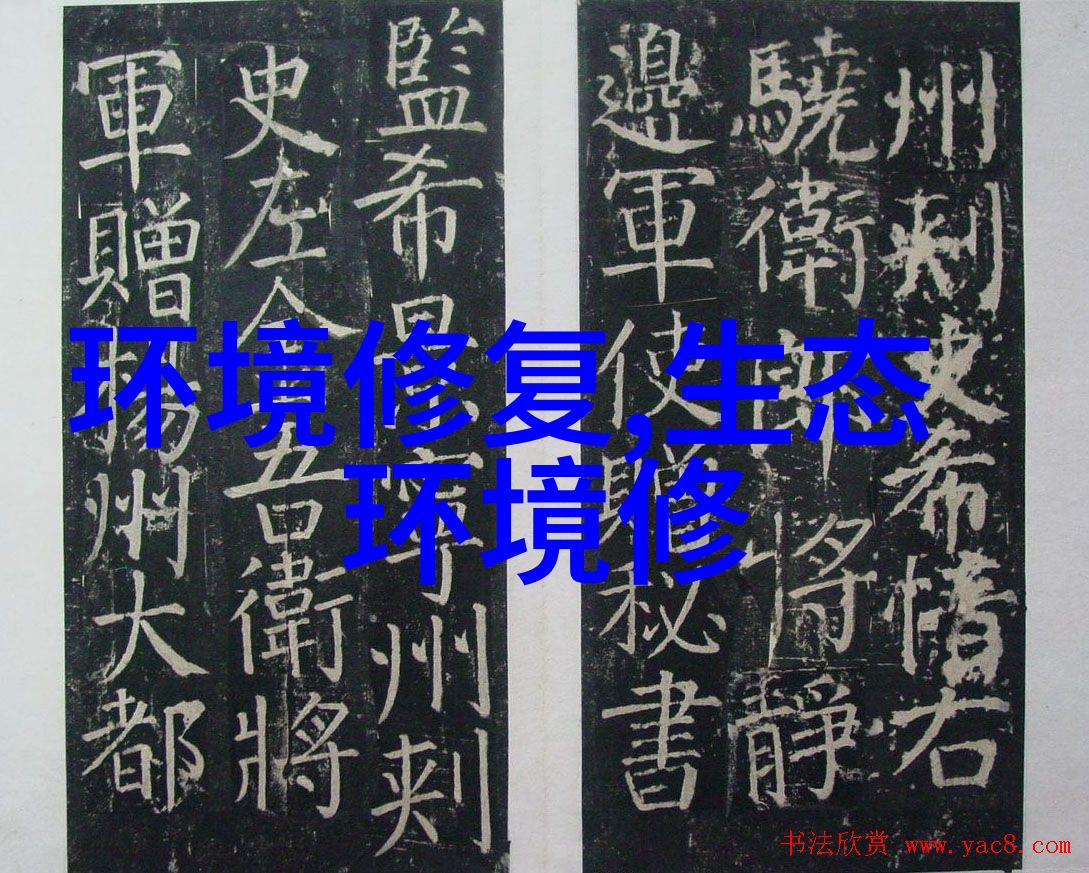 州刺史希右
驍衛郎將靜
邊軍使贈秘書
監希寧州刺
史左金吾衛將
軍贈揚州大都
环境修复,生态
环境修
书法欣赏 www.yac8.com